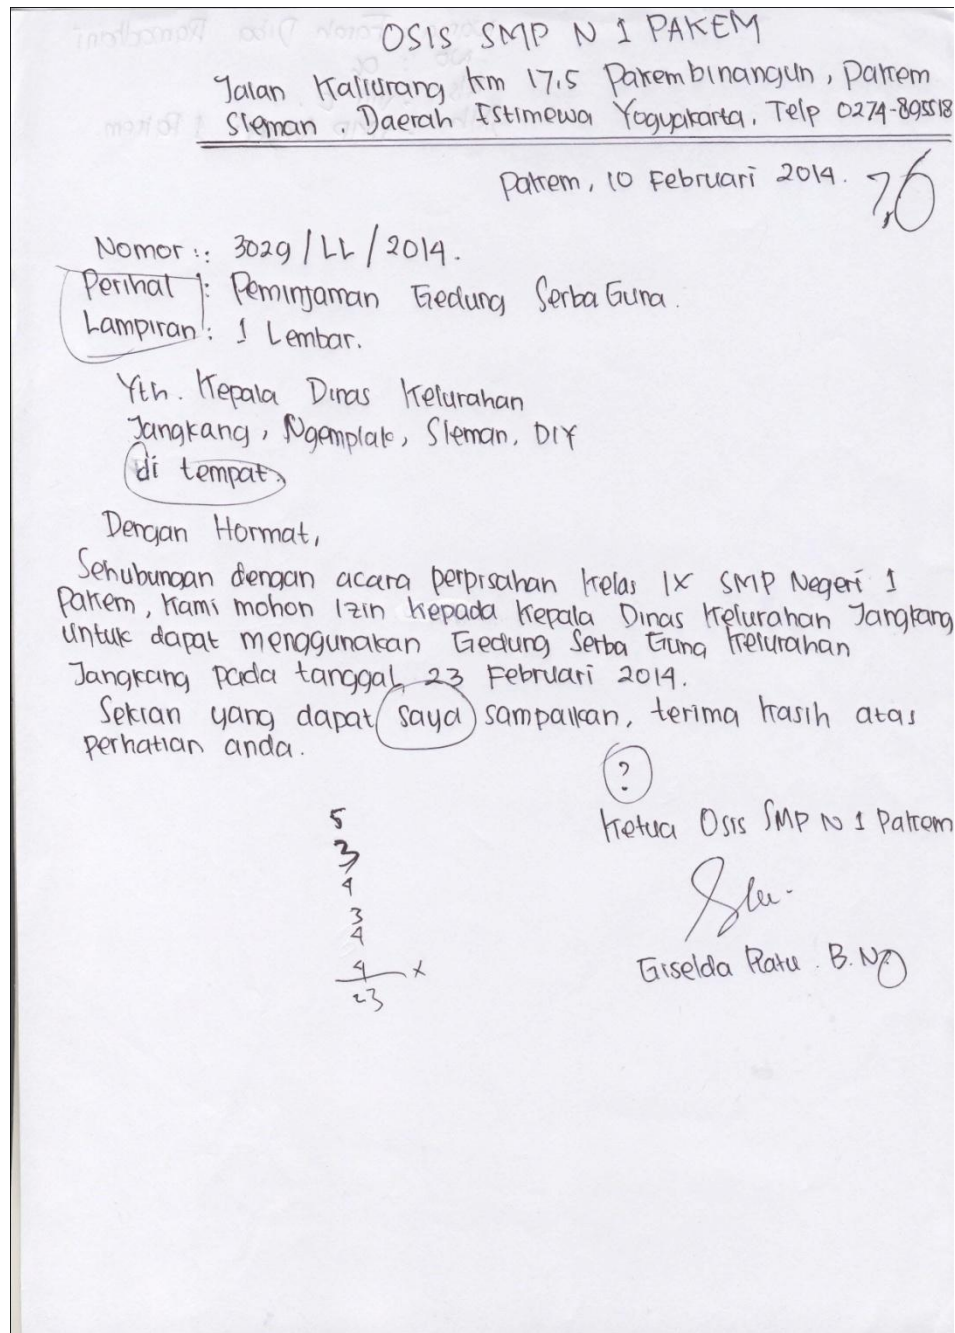 OSIS SMP N 1 PAKEM
Jalan Kaliurang km 17,5 Pakembinangun, Pakem
Sleman, Daerah Istimewa Yogyakarta, Telp 0274-895518
Pakem, 10 Februari 2014.
7,6
Nomor :: 3029/LL/2014.
Perihal : Peminjaman Gedung Serba Guna.
Lampiran : 1 Lembar.
Yth. Kepala Dinas Kelurahan
Jangkang, Ngemplak, Sleman, DIY
di tempat.
Dengan Hormat,
Sehubungan dengan acara perpisahan kelas IX SMP Negeri 1
Pakem, kami mohon izin kepada Kepala Dinas Kelurahan Jangkang
untuk dapat menggunakan Gedung Serba Guna Kelurahan
Jangkang pada tanggal 23 Februari 2014.
Sekian yang dapat saya sampaikan, terima kasih atas
perhatian anda.
?
Ketua Osis SMP N 1 Pakem
5
3
4
3
4
4 x
23
Giselda Ratu . B.N